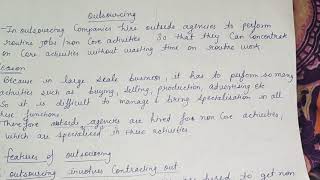 Outsourcing
- In outsourcing Companies hire outside agencies to perform
routine jobs / non Core activities So that they Can concentrate
on Core activities without wasting time on routine work.
eason
Because in large scale business, it has to perform so many
activities such as buying, selling, production, advertising etc
So it is difficult to manage & bring specialisation in all
functions.
Therefore outside agencies are hired for non core activities,
which are specialised in these activities.
features of outsourcing
outsourcing involves Contracting out
to get non